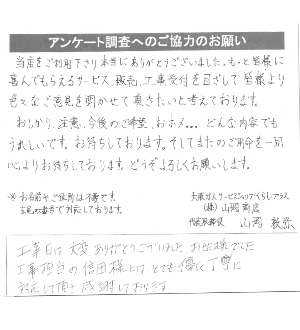 アンケート調査へのご協力のお願い
当店をご利用下さり本当にありがとうございました。もっと皆様に
喜んでもらえるサービス、販売、工事受付を目ざして皆様より
色々なご意見を聞かせて頂きたいと考えております。
おしかり、注意、今後のご希望、おホメ… どんな内容でも
うれしいです。お待ちしております。そしてまたのご用命を一同
心よりお待ちしております。どうぞよろしくお願いします。
※お名前やご住所は不要です。
大阪ガスサービスショップくらしプラス
(株)山岡商店
代表取締役 山岡
工事日は大変ありがとうございました
工事担当の信田様とは とても優しく丁寧に
対応して頂き感謝しております